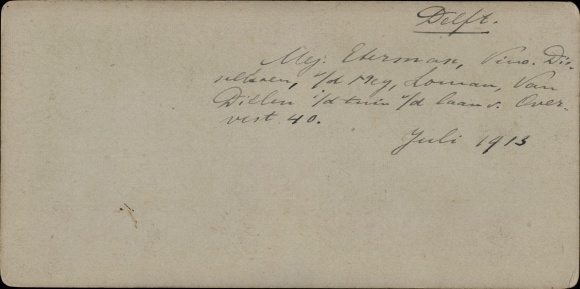 Delft.
Mej. Eterman, Vino. Dis-
selkoen, v/d Mey, Loman, Van
Dillen i/d tuin v/d laan v. Over-
vest 40.
Juli 1913